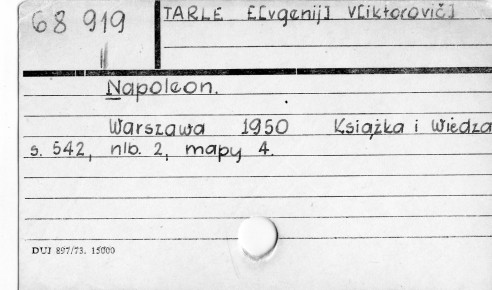 68 919
TARLE E[vgenij] V[iktorovič]
II
Napoleon.
Warszawa 1950 Książka i Wiedza
s. 542, nlb. 2, mapy 4.
DUI 897/73. 15000